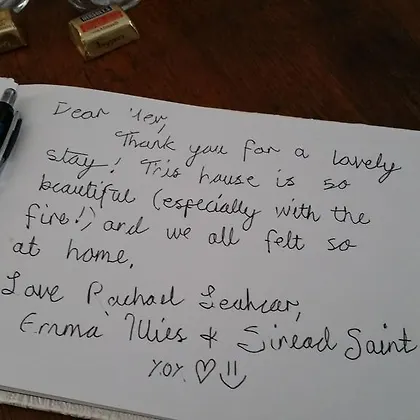 Dear
Thank you for a lovely
stay! This house is so
beautiful (especially with the
fire!) and we all felt so
at home.
Love Rachael
Emma & Sinead Saint
xox ♡